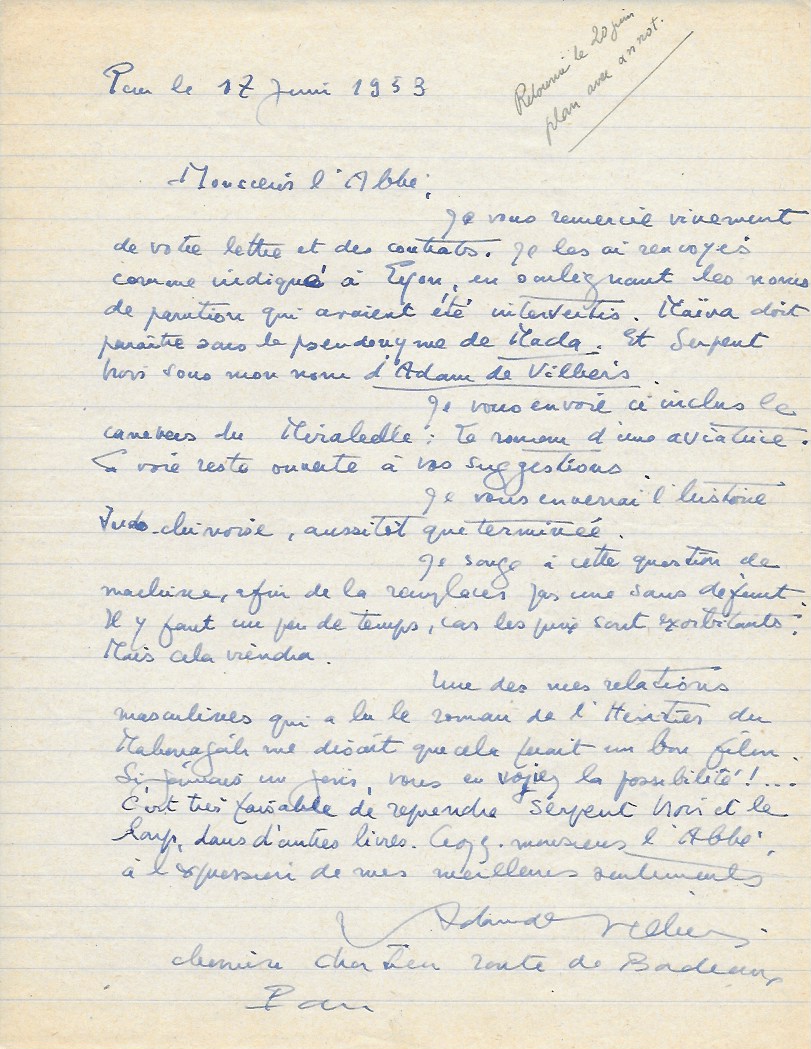 Retourné le 20 juin
plan avec annot.
Pau le 17 Juin 1953
Monsieur l'Abbé,
Je vous remercie vivement
de votre lettre et des contrats. Je les ai renvoyés
comme indiqué à Lyon, en soulignant les noms
de parution qui avaient été intervertis. Maïva doit
paraître sous le pseudonyme de Mada. Et Serpent
Noir sous mon nom d'Adam de Villiers.
Je vous envoie ci inclus le
canevas du Mirabelle : Le roman d'une aviatrice.
La voie reste ouverte à vos suggestions.
Je vous enverrai l'histoire
Indo-chinoise, aussitôt que terminée.
Je songe à cette question de
machine, afin de la remplacer par une sans défaut.
Il y faut un peu de temps, car les prix sont exorbitants.
Mais cela viendra.
Une des mes relations
masculines qui a lu le roman de l'Héritier du
me disait que cela ferait un bon film.
Si jamais un jour, vous en voyiez la possibilité !...
C'est très faisable de reprendre Serpent Noir et le
Loup, dans d'autres livres. monsieur l'Abbé,
à l'expression de mes meilleurs sentiments
Adam de Villiers
route de Bordeaux
Pau